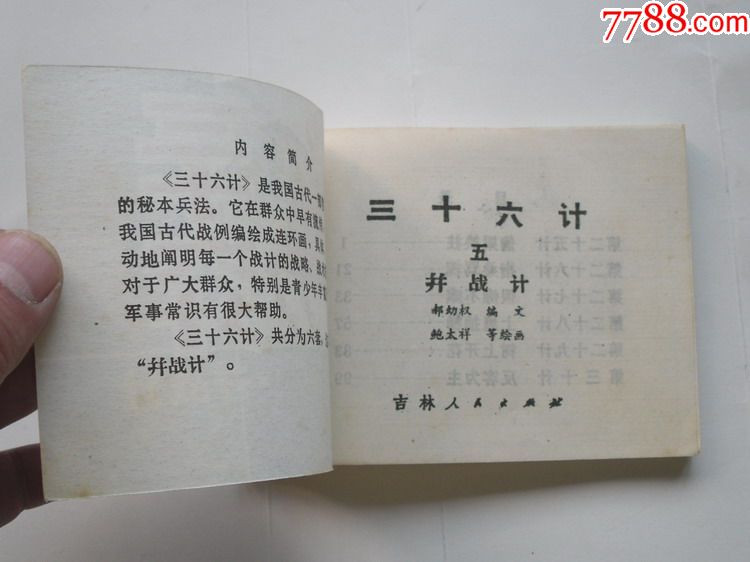 7788.com
中国收藏热线
内容简介
《三十六计》是我国古代一部
的秘本兵法。它在群众中早有
我国古代战例编绘成连环画，具
动地阐明每一个战计的战略、战
对于广大群众，特别是青少年丰
军事常识有很大帮助。
《三十六计》共分为六套，
“幷战计”。
三十六计
五
幷战计
郝幼权 编文
鲍太祥 等绘画
吉林人民出版社